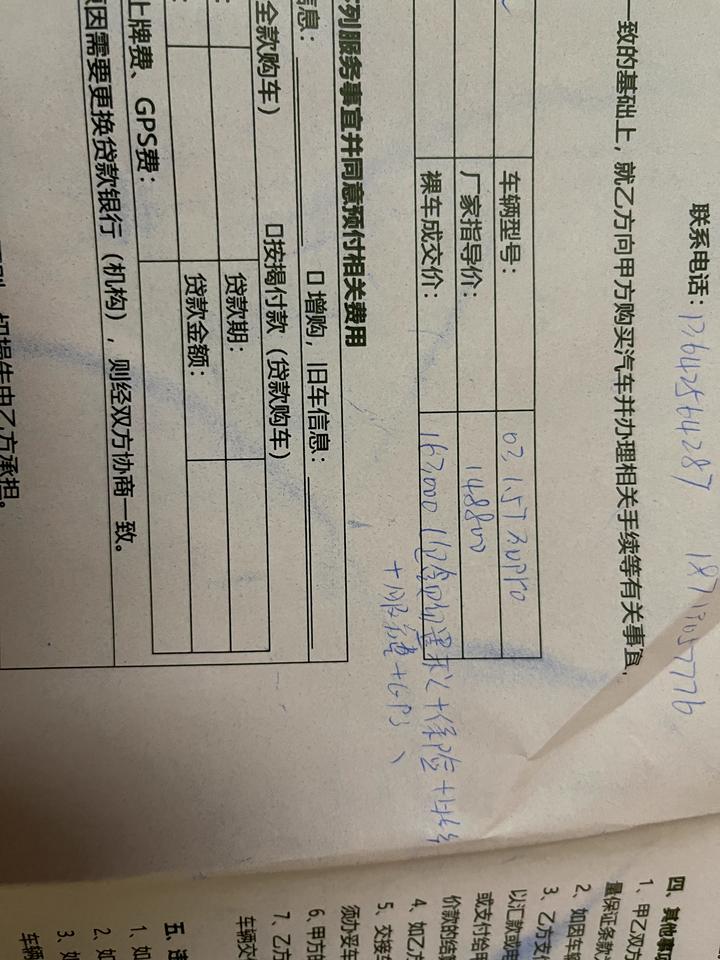 联系电话:13642564287 18713057776
一致的基础上,就乙方向甲方购买汽车并办理相关手续等有关事宜,
车辆型号: 03 1.5T 3.0pro
厂家指导价: 148800
裸车成交价: 162,000(包含购置税+保险+上牌
+服务费+GPS)
列服务事宜并同意预付相关费用
信息: □ 增购,旧车信息:
全款购车) □按揭付款(贷款购车)
贷款期:
贷款金额:
上牌费、GPS费:
原因需要更换贷款银行(机构),则经双方协商一致。
切损失由乙方承担。
四、其他事项
1、甲乙双方
量保证条款
2、如因车辆
3、乙方支付
以汇款或
或支付给甲
价款的结算
4、如乙方
5、交接车
须办妥车
6、甲方的
7、乙方
车辆交
五、违
1、如
2、如
3、如
车辆